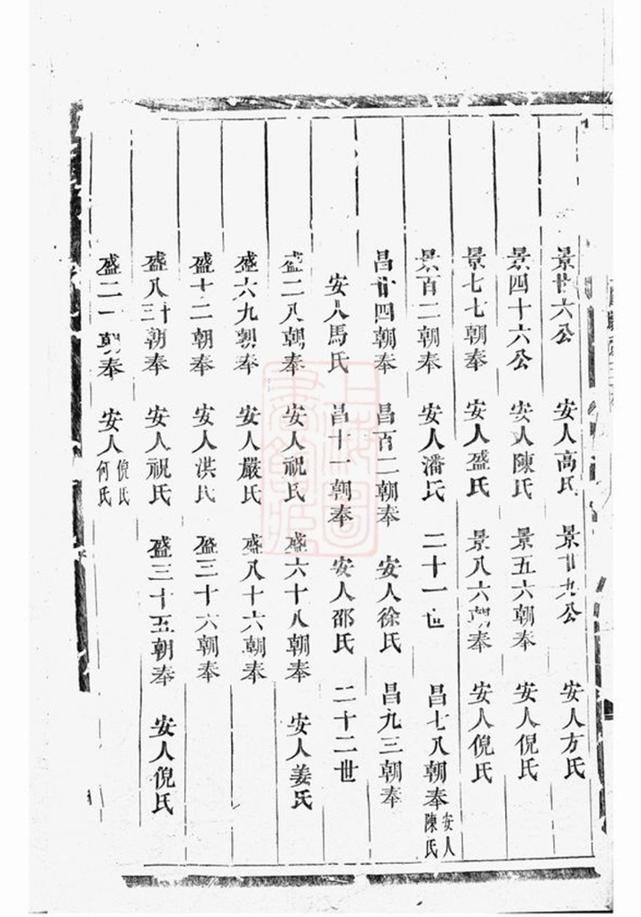 景廿六公 安人高氏 景廿九公 安人方氏
景四十六公 安人陳氏 景五六朝奉 安人倪氏
景七七朝奉 安人盛氏 景八六朝奉 安人倪氏
景百二朝奉 安人潘氏 二十一世 昌七八朝奉 安人陳氏
昌廿四朝奉 昌百二朝奉 安人徐氏 昌九三朝奉
安人馬氏 昌十一朝奉 安人邵氏 二十二世
盛二八朝奉 安人祝氏 盛六十八朝奉 安人姜氏
盛六九朝奉 安人嚴氏 盛八十六朝奉
盛十二朝奉 安人洪氏 盛三十六朝奉
盛八卅朝奉 安人祝氏 盛三十五朝奉 安人倪氏
盛二一朝奉 安人倪氏何氏